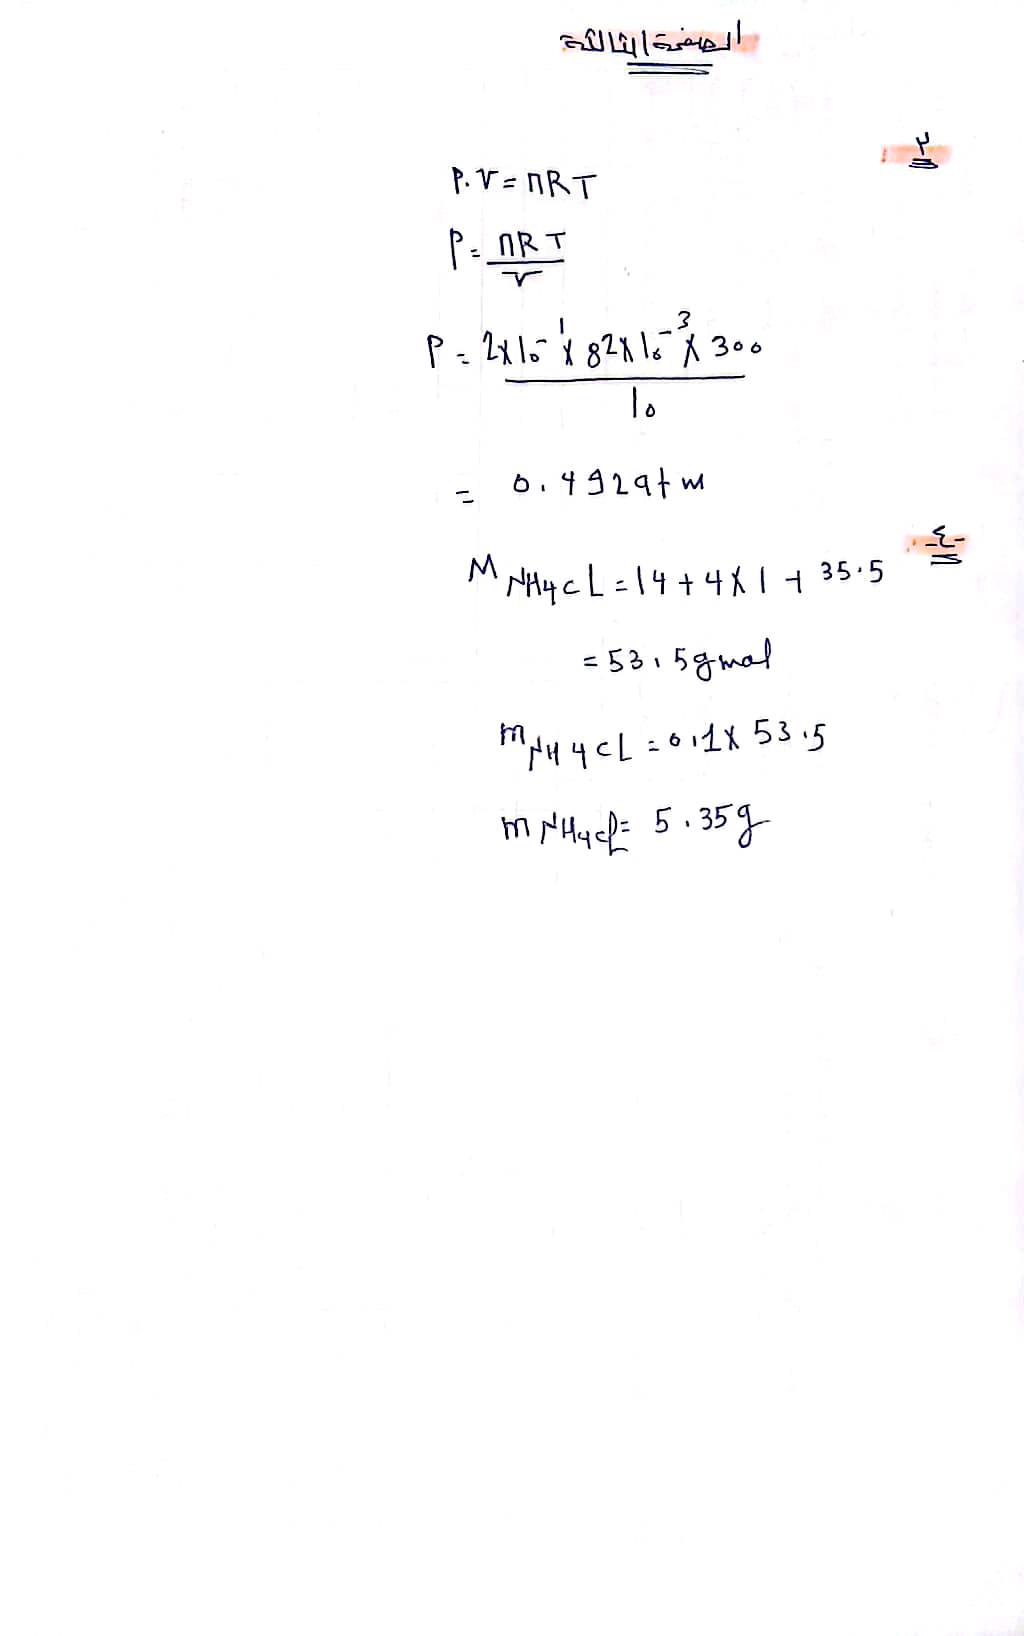 الصفحة الثالثة
٢
P.V = nRT
P = nRT
V
P = 2x10⁻¹ x 82x10⁻³ x 300
10
= 0.492atm
-٤-
M NH4CL = 14 + 4x1 + 35.5
= 53.5gmol
m NH4CL = 0.1x 53.5
m NH4CL = 5.35g